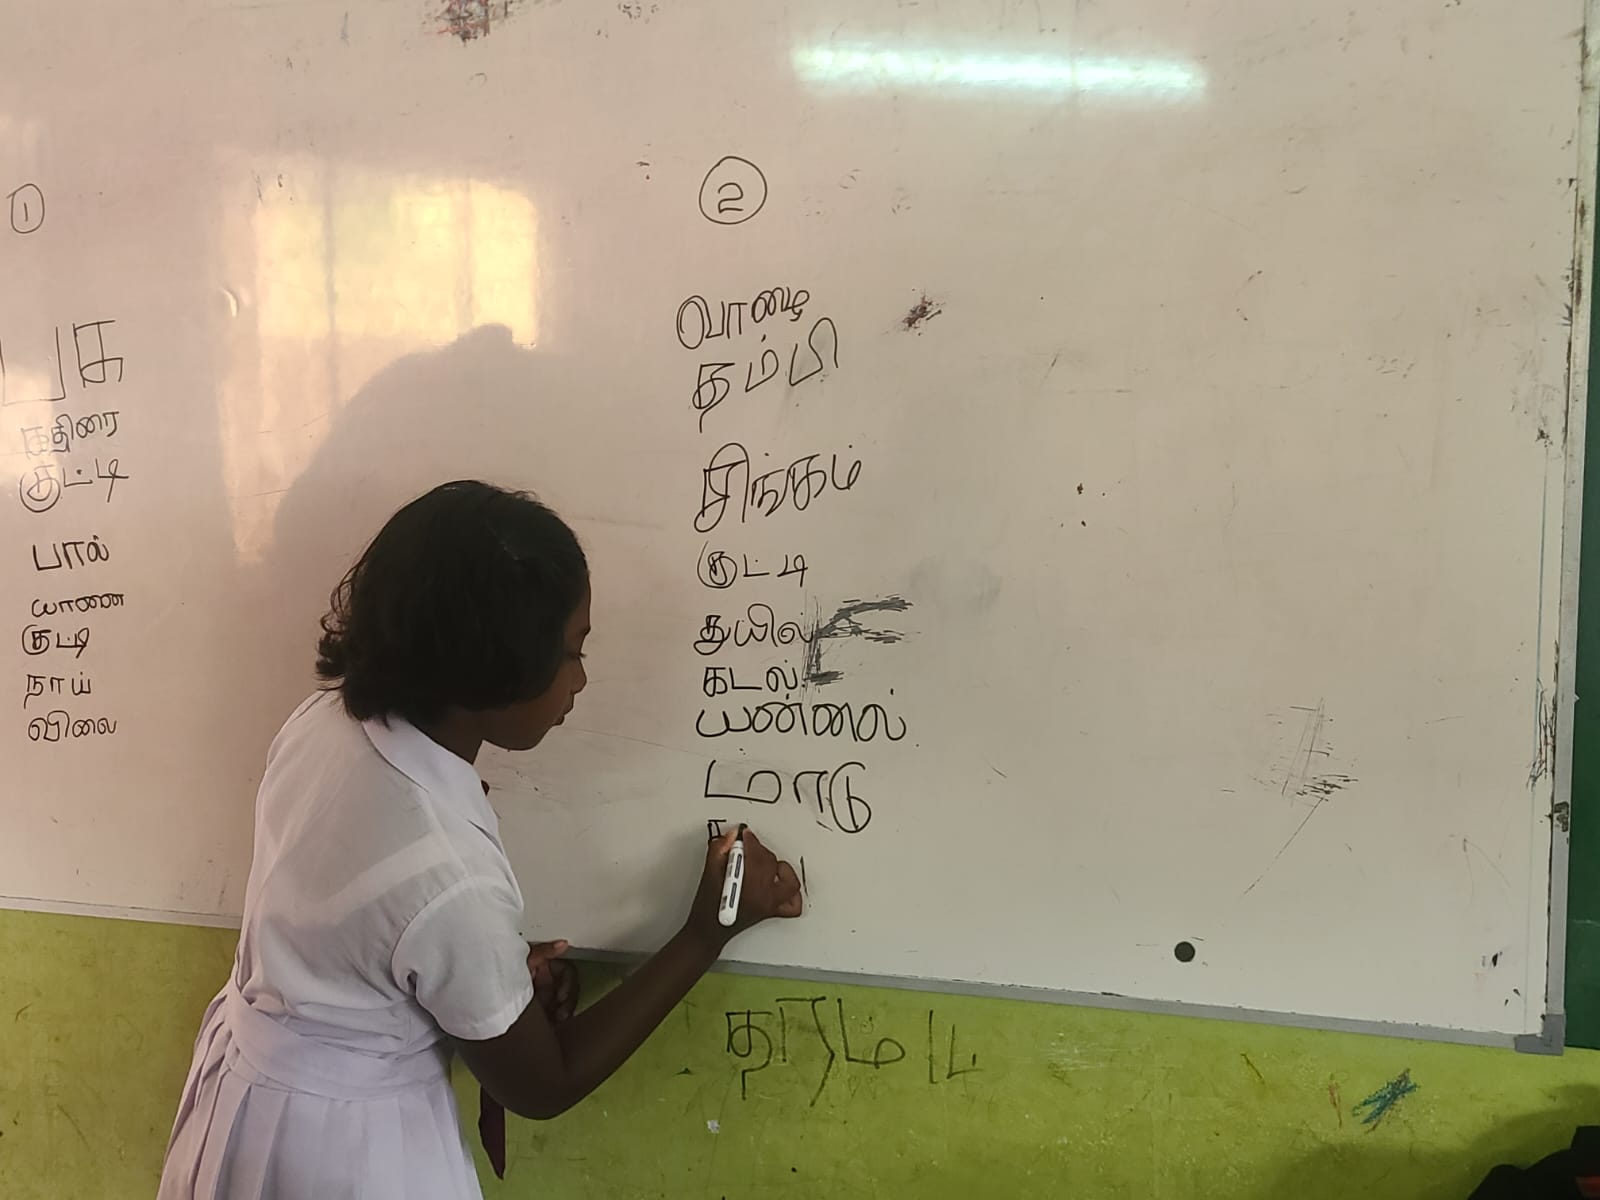 1
பசு
கதிரை
குட்டி
பால்
யானை
குட்டி
நாய்
விலை
2
வாழை
தம்பி
சிங்கம்
குட்டி
துயில்
கடல்
யன்னல்
மாடு
தரம்